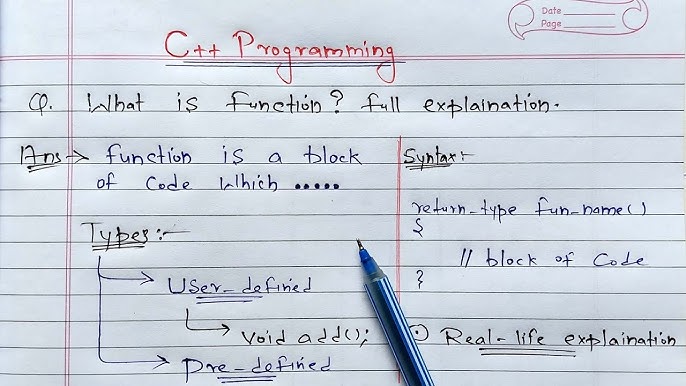 Date
Page
C++ Programming
Q. What is function? full explaination.
Ans → function is a block
of code which .....
Types:-
User-defined
void add();
Pre-defined
Syntax:-
return-type fun-name()
{
// block of code
}
Real-life explaination